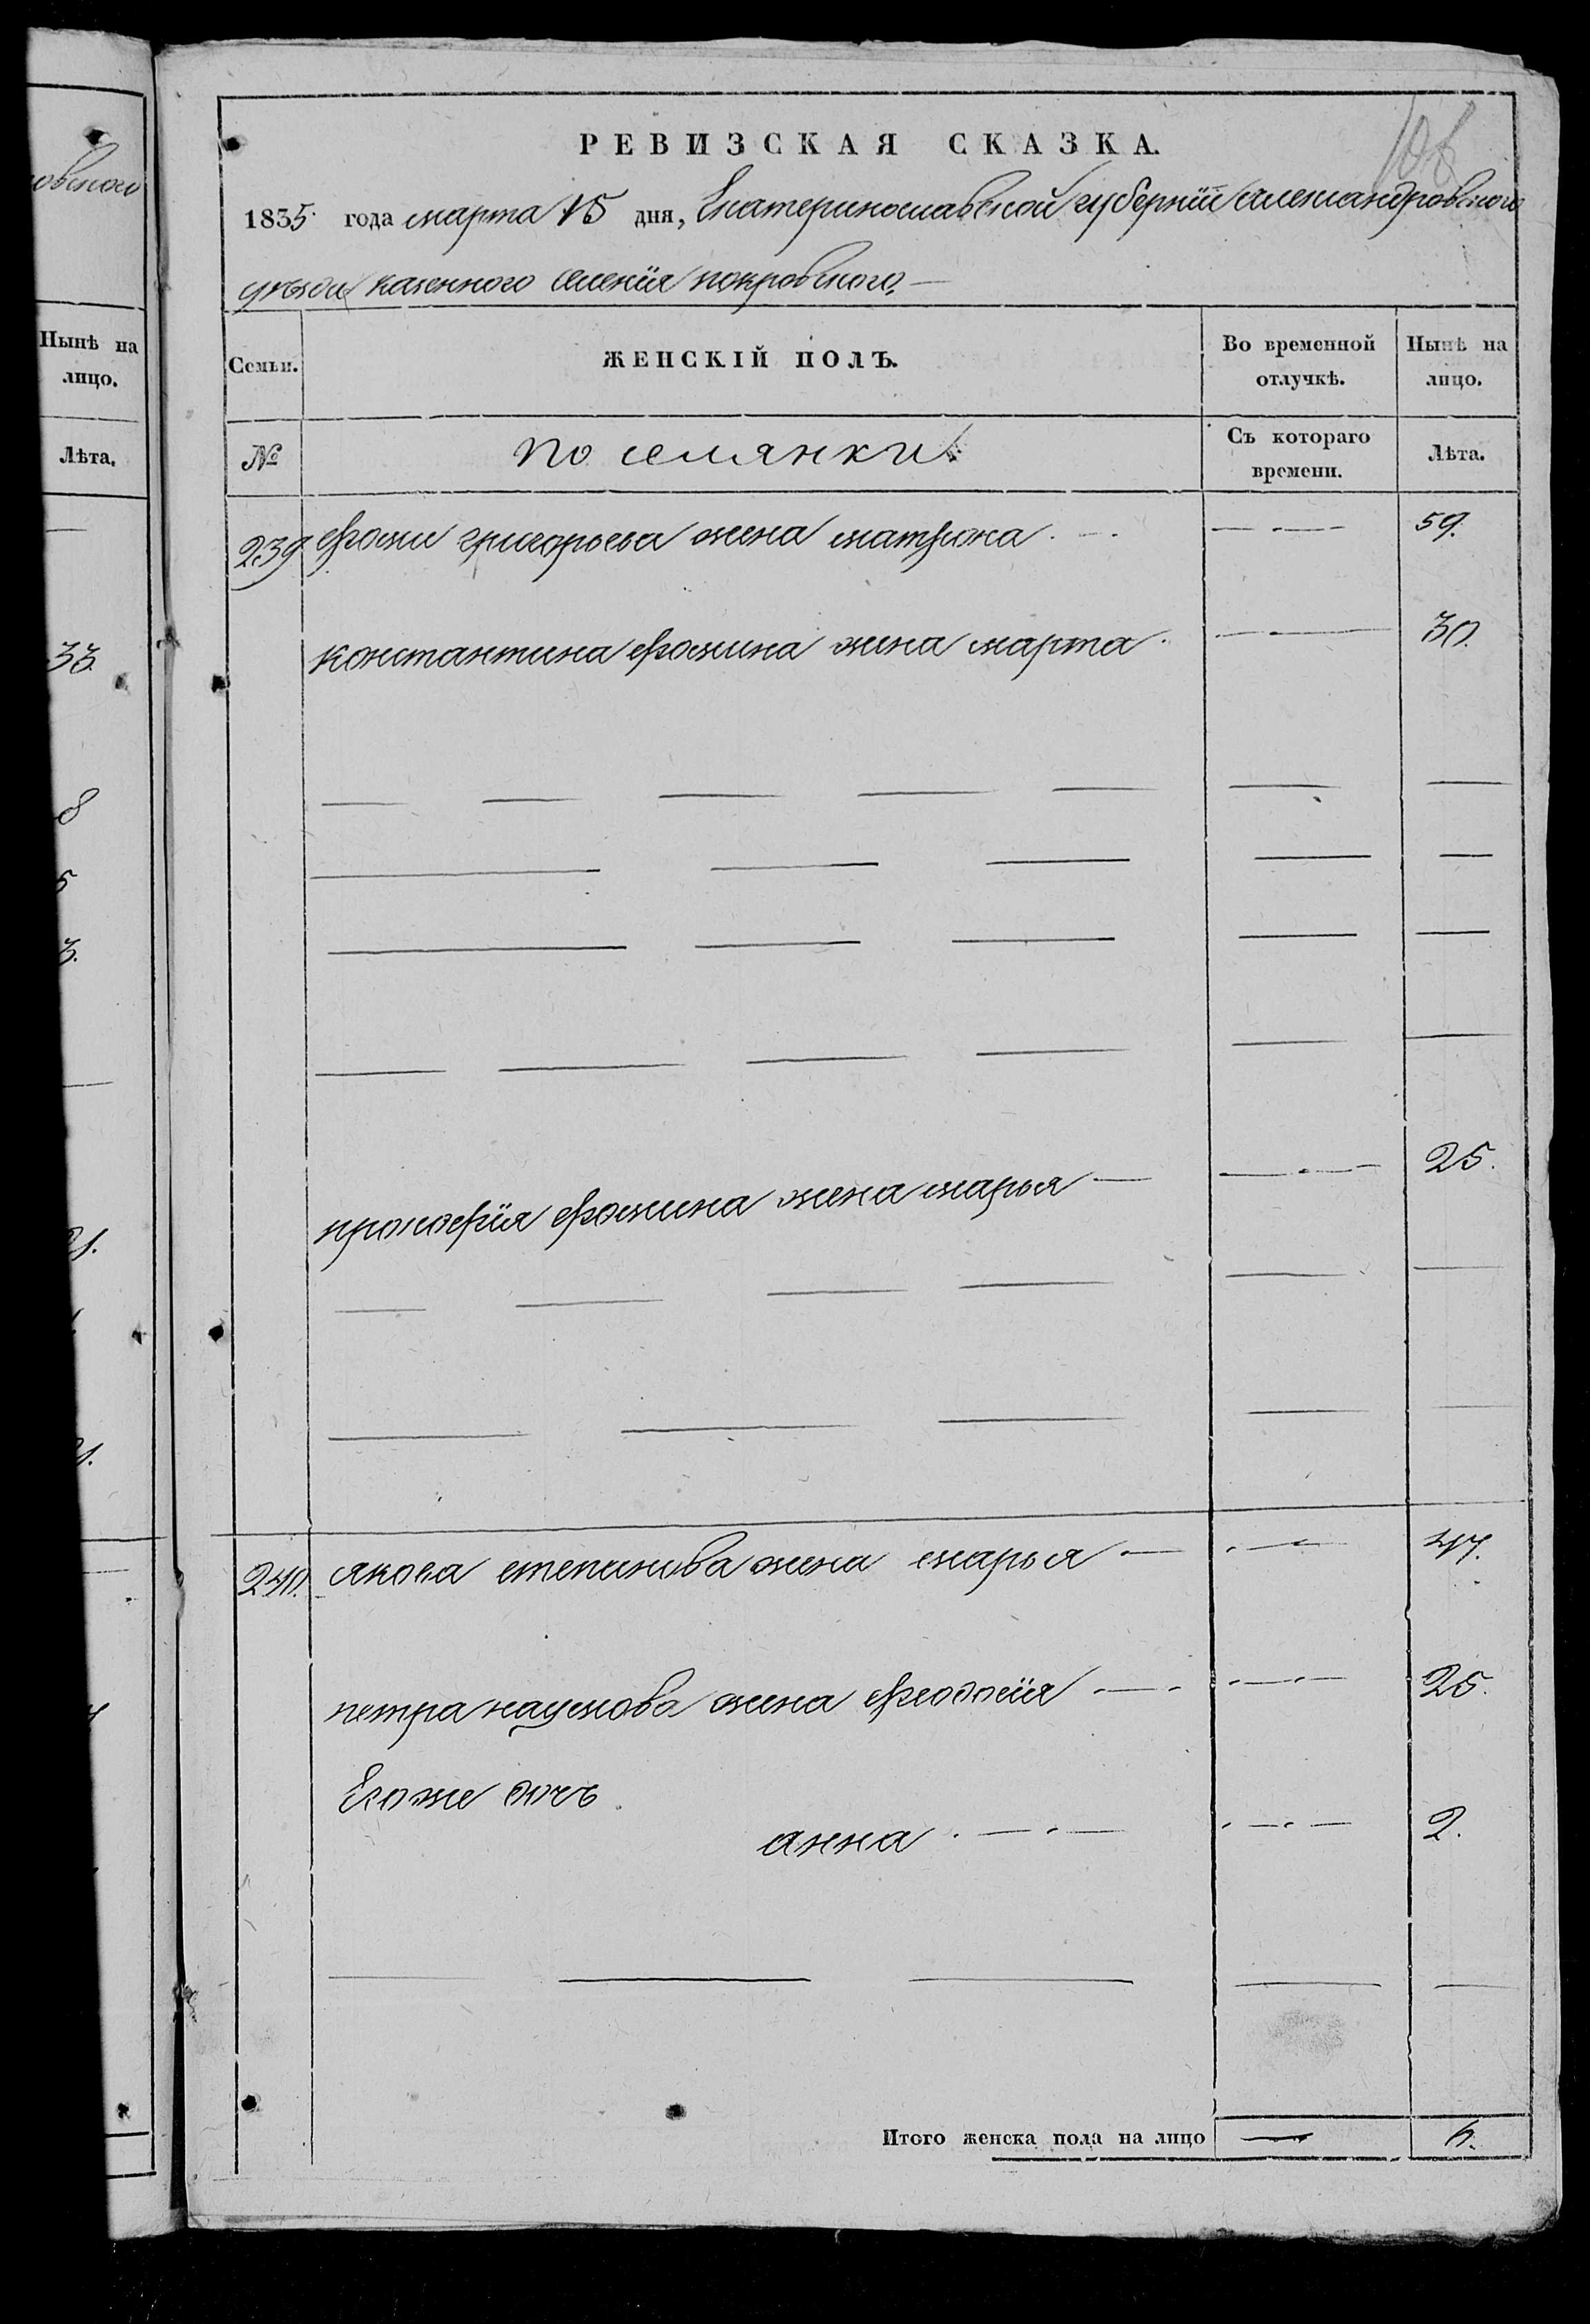 овского
Нынѣ на
лицо.
Лѣта.
33.
8
5
3.
106
РЕВИЗСКАЯ СКАЗКА.
1835 года марта 15 дня, Екатеринославской губернїи александровского
уѣзда казенного селенїя покровского.
Семьи. ЖЕНСКІЙ ПОЛЪ. Во временной отлучкѣ. Нынѣ на лицо.
№ поселянки Съ котораго времени. Лѣта.
239 фомы григорьева жена матрона 59.
константина фомина жена марта 30.
прокофїя фомина жена марья 25.
240. якова степанова жена марья 47.
петра наумова жена феодосїя 25.
Егоже дочь
анна 2.
Итого женска пола на лицо 6.